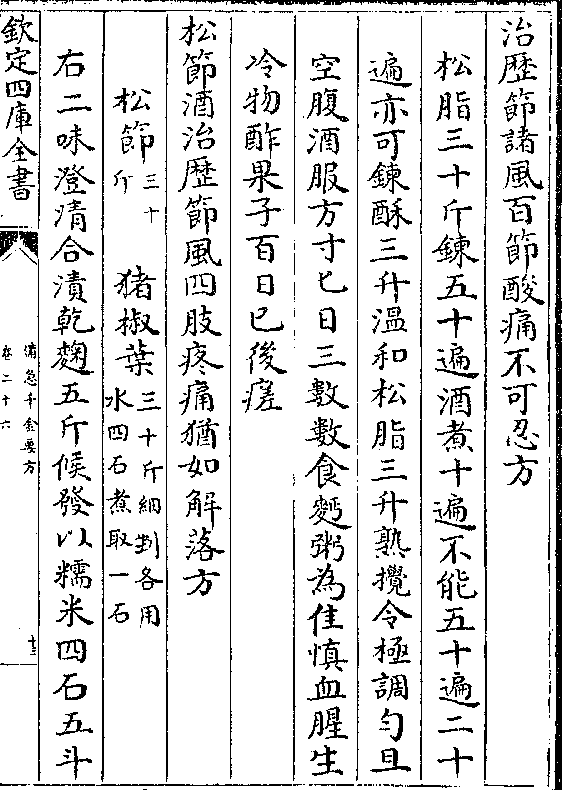 治歴節諸風百節酸痛不可忍方
松脂三十斤鍊五十遍酒煮十遍不能五十遍二十
遍亦可鍊酥三升溫和松脂三升熟攪令極調勻旦
空腹酒服方寸匕日三數數食麫粥為佳慎血腥生
冷物酢果子百日已後瘥
松節酒治歴節風四肢疼痛猶如解落方
松節三十斤 猪椒葉三十斤細剉各用水四石煮取一石
右二味澄清合漬乾麴五斤候發以糯米四石五斗
欽定四庫全書
備急千金要方
卷二十六
十三